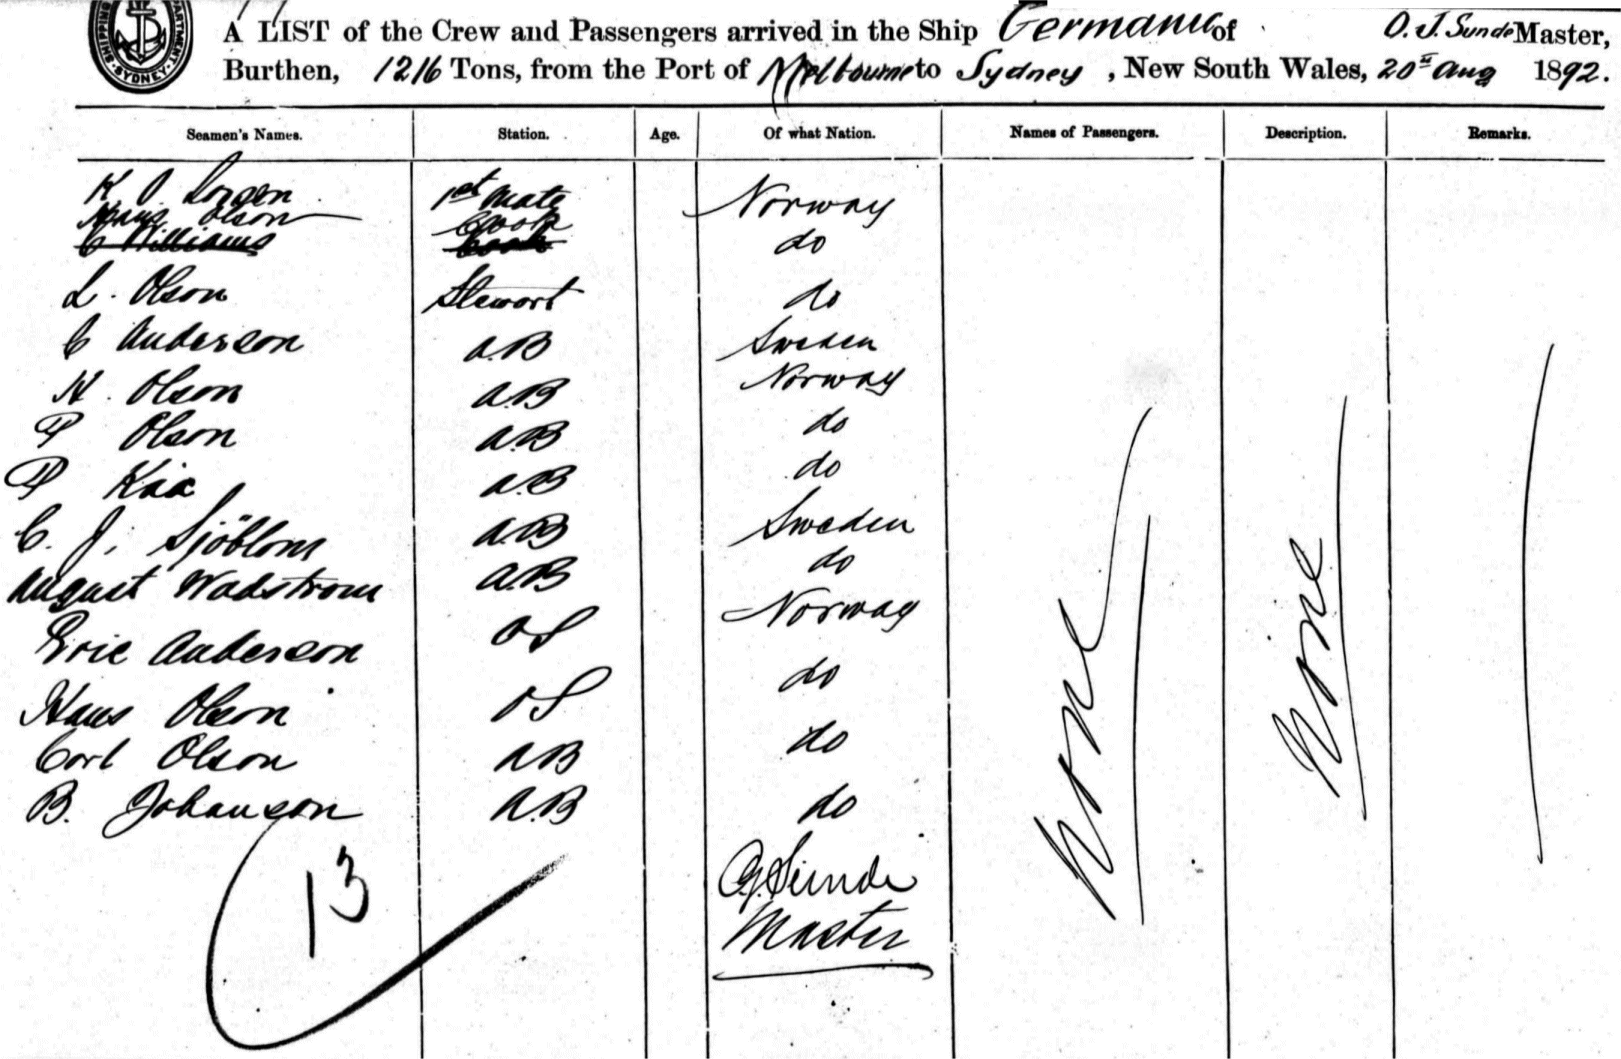 SHIPPING DEPARTMENT. SYDNEY.
A LIST of the Crew and Passengers arrived in the Ship Germanic of O. J. Sunde Master,
Burthen, 1216 Tons, from the Port of Melbourne to Sydney, New South Wales, 20th Aug 1892.
Seamen's Names. Station. Age. Of what Nation. Names of Passengers. Description. Remarks.
K. O. Lorsen 1st Mate Norway
Hans Olson Cook
C Williams Cook do
L. Olson Stewort do
C Anderson A.B Sweden
H. Olson A.B Norway
P Olson A.B do
P A.B do
C. J. Sjöblom A.B Sweden
August Wadstrom A.B do
Eric Anderson OS Norway
Hans Olson OS do
Carl Olson AB do
B. Johanson A.B do
None None
13
O.J. Sunde
Master